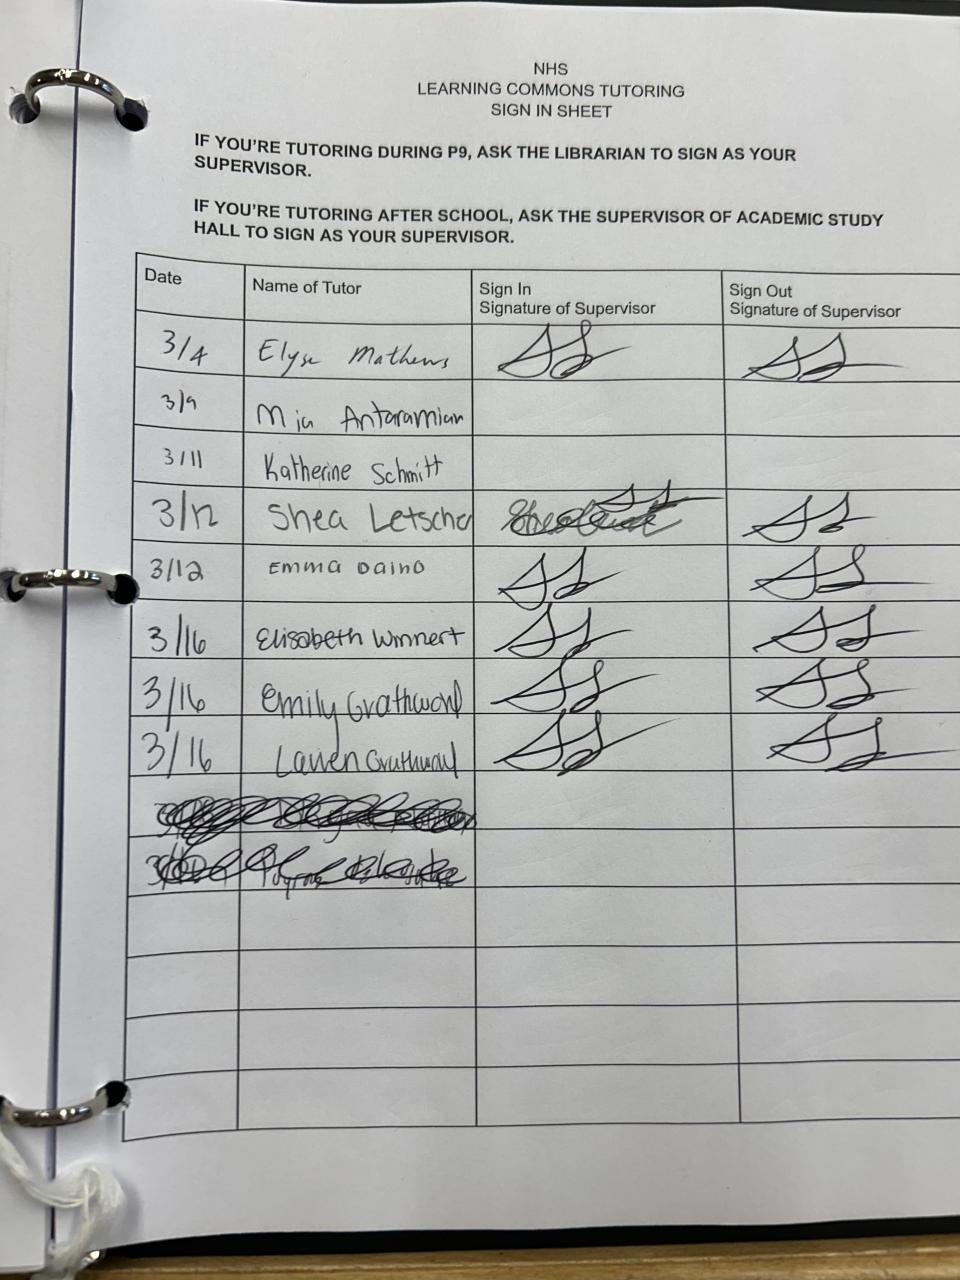 NHS
LEARNING COMMONS TUTORING
SIGN IN SHEET
IF YOU'RE TUTORING DURING P9, ASK THE LIBRARIAN TO SIGN AS YOUR
SUPERVISOR.
IF YOU'RE TUTORING AFTER SCHOOL, ASK THE SUPERVISOR OF ACADEMIC STUDY
HALL TO SIGN AS YOUR SUPERVISOR.
Date Name of Tutor Sign In Sign Out
Signature of Supervisor Signature of Supervisor
3/4 Elyse Mathews
3/9 Mia Antaramian
3/11 Katherine Schmitt
3/12 Shea
3/12 EMMA DAINO
3/16 Elisabeth Winnert
3/16 Emily Grathwohl
3/16 Lauren Grathwohl